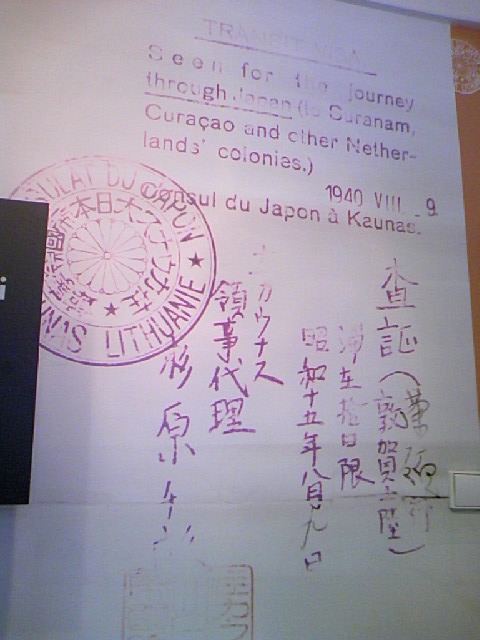 TRANSIT VISA
Seen for the journey
through Japan (to Suranam,
Curaçao and other Nether-
lands' colonies.)
1940 VIII 9
Consul du Japon à Kaunas.
CONSULAT DU JAPON
KAUNAS LITHUANIE
大日本帝國
査証(敦賀上陸)
滞在拾日限
昭和十五年八月九日
在カウナス
領事代理
杉原千畝